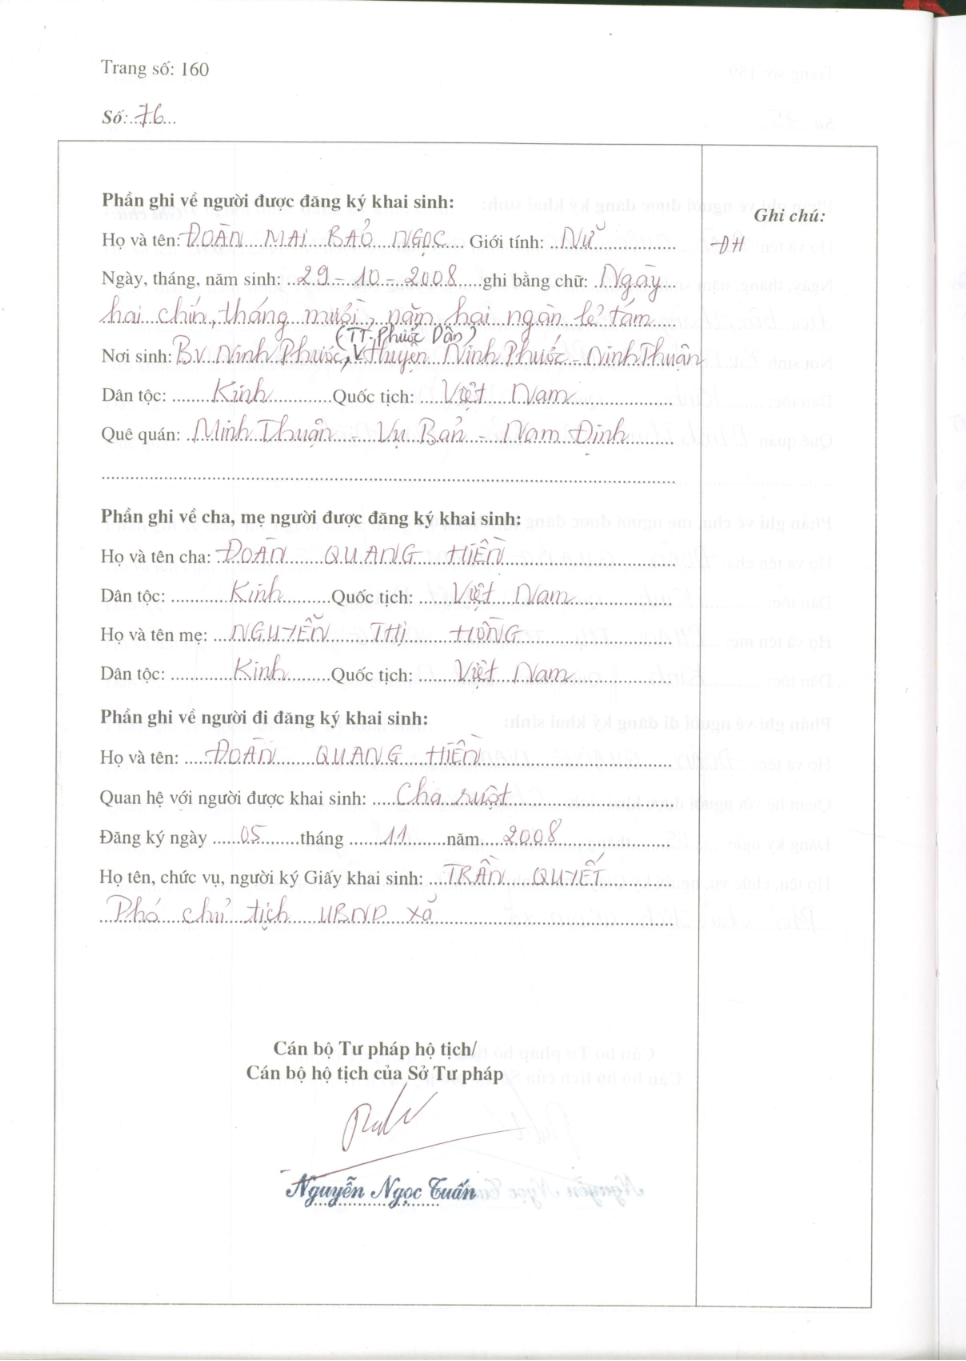 Trang số: 160
Số: 76
Phần ghi về người được đăng ký khai sinh:
Ghi chú:
Họ và tên: ĐOÀN MAI BẢO NGỌC Giới tính: Nữ
ĐH
Ngày, tháng, năm sinh: 29-10-2008 ghi bằng chữ: Ngày
hai chín, tháng mười, năm hai ngàn lẻ tám
(TT. Phước Dân)
Nơi sinh: BV Ninh Phước, Huyện Ninh Phước - Ninh Thuận
Dân tộc: Kinh Quốc tịch: Việt Nam
Quê quán: Minh Thuận - Vụ Bản - Nam Định
Phần ghi về cha, mẹ người được đăng ký khai sinh:
Họ và tên cha: ĐOÀN QUANG HIỀN
Dân tộc: Kinh Quốc tịch: Việt Nam
Họ và tên mẹ: NGUYỄN THỊ HỒNG
Dân tộc: Kinh Quốc tịch: Việt Nam
Phần ghi về người đi đăng ký khai sinh:
Họ và tên: ĐOÀN QUANG HIỀN
Quan hệ với người được khai sinh: Cha ruột
Đăng ký ngày 05 tháng 11 năm 2008
Họ tên, chức vụ, người ký Giấy khai sinh: TRẦN QUYẾT
Phó chủ tịch UBND xã
Cán bộ Tư pháp hộ tịch/
Cán bộ hộ tịch của Sở Tư pháp
Nguyễn Ngọc Tuấn